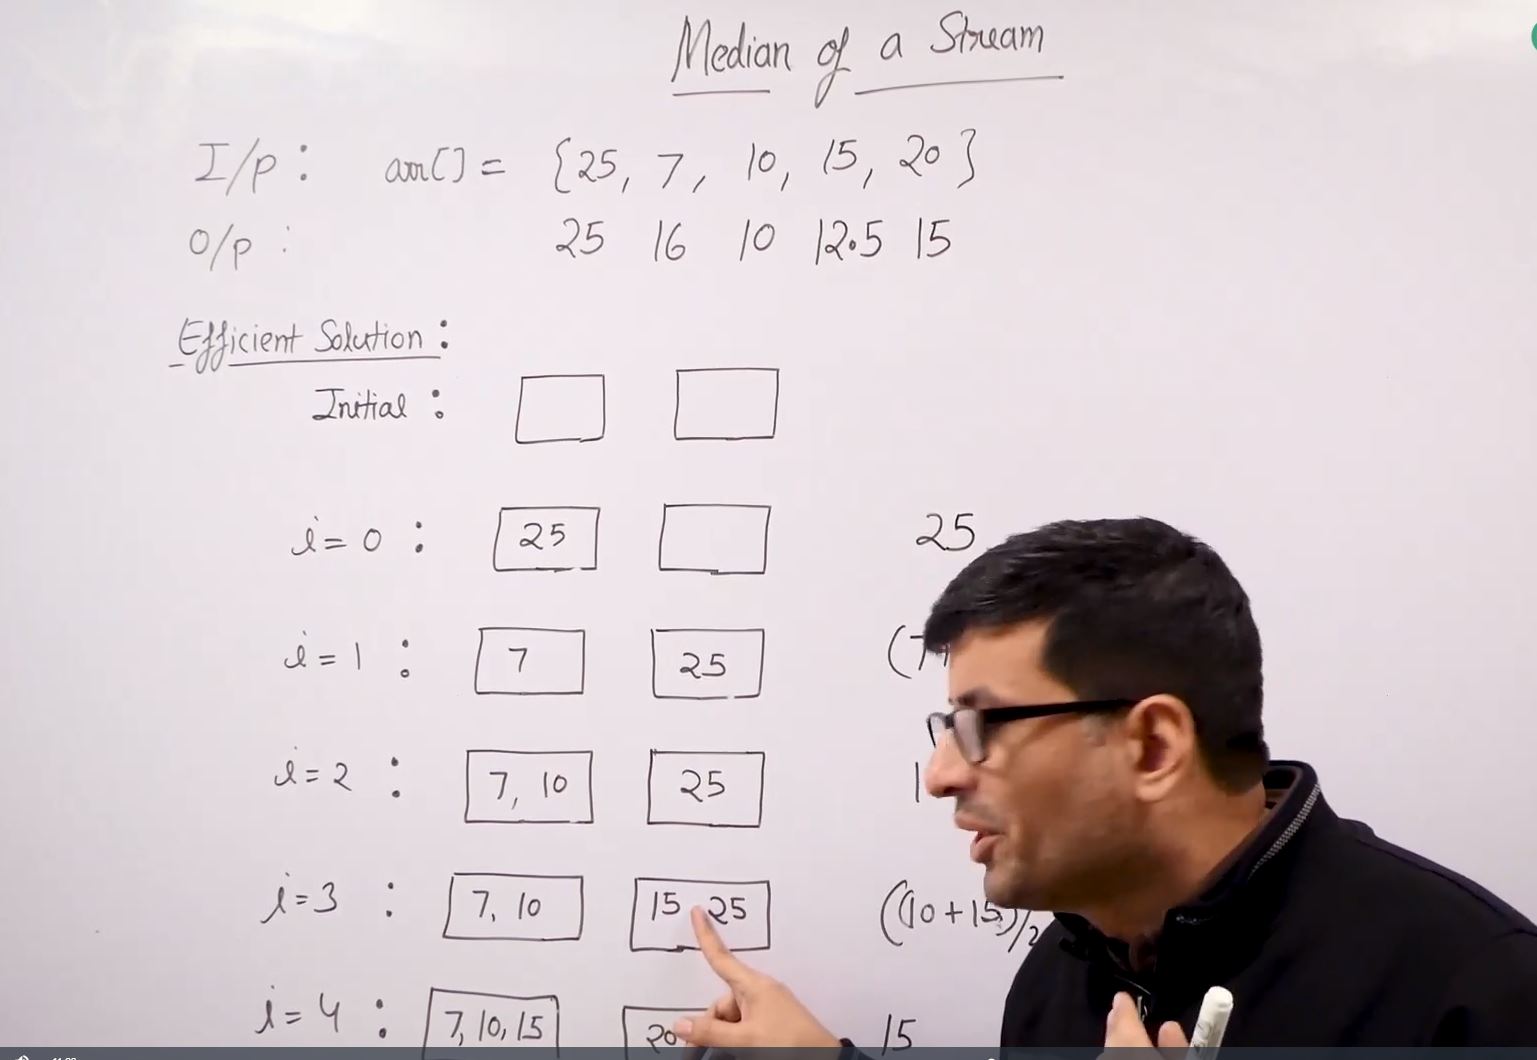 Median of a Stream
I/p : arr[] = {25, 7, 10, 15, 20}
O/p : 25 16 10 12.5 15
Efficient Solution :
Initial :
i = 0 : 25 25
i = 1 : 7 25 (7+
i = 2 : 7, 10 25 1
i = 3 : 7, 10 15, 25 ((10+15)/2
i = 4 : 7, 10, 15 20 15